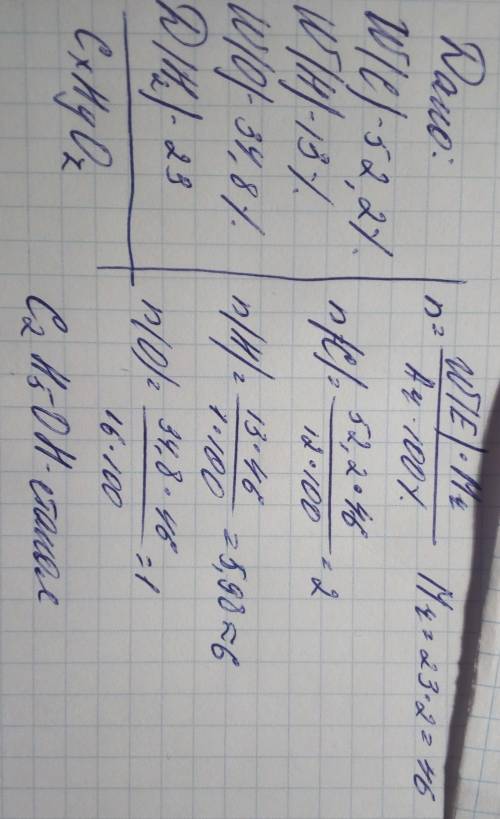 Дано:
W(C)-52,2%
W(H)-13%
W(O)-34,8%
D(H₂)-23
CxHyOz
n = W(E)·Mr / Ar·100%
Mr = 23·2 = 46
n(C) = 52,2·46 / 12·100 = 2
n(H) = 13·46 / 1·100 = 5,98 ≈ 6
n(O) = 34,8·46 / 16·100 = 1
C₂H₅OH-етанол